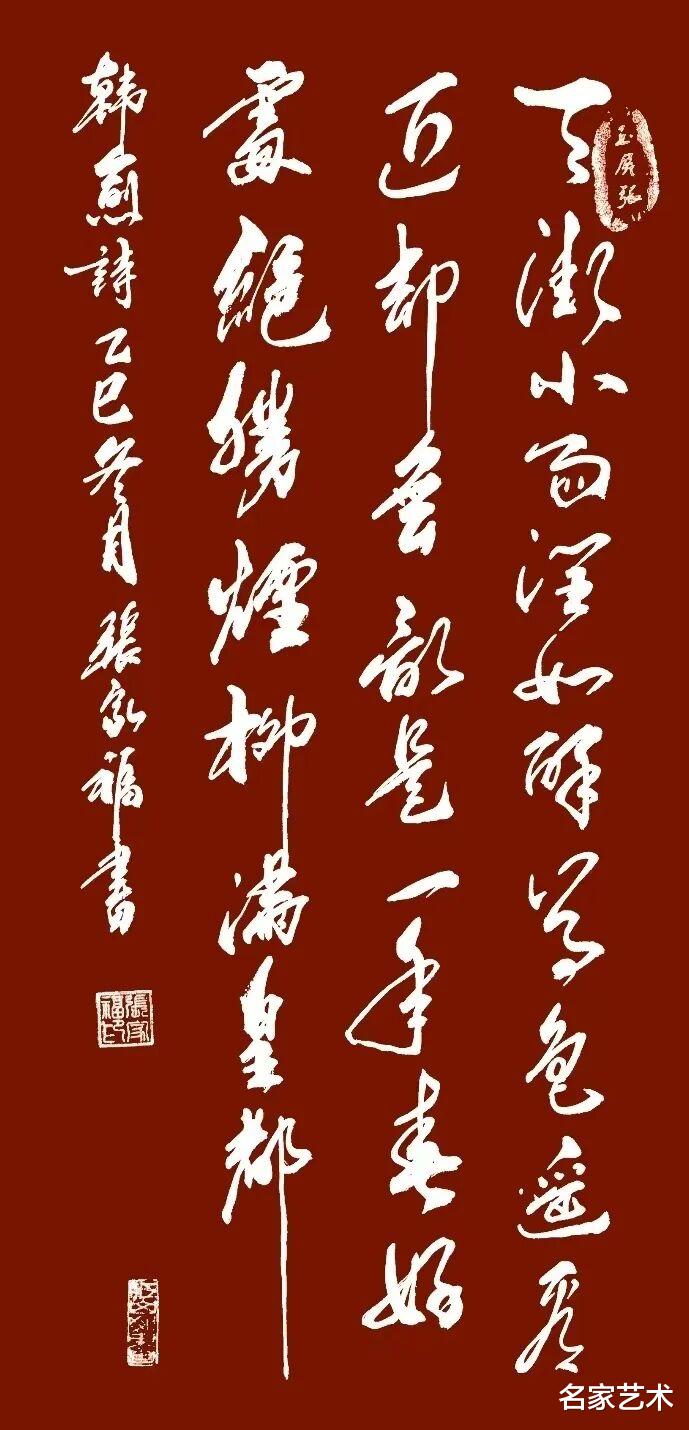 天街小雨潤如酥草色遥看
近却無最是一年春好
處絕勝煙柳滿皇都
韓愈詩乙巳冬月張家福書
玉屏張
張家福印
名家艺术